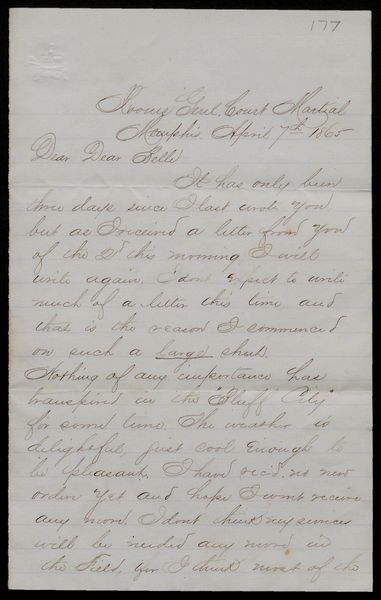 177
Rooms Genl. Court Martial
Memphis. April 7th 1865
Dear Dear Belle
It has only been
three days since I last wrote you
but as I received a letter from you
of the 2d this morning I will
write again. I dont expect to write
much of a letter this time, and
that is the reason I commenced
on such a large sheet.
Nothing of any importance has
transpired in the Bluff City
for some time. The weather is
delightful, just cool enough to
be pleasant. I have rec'd. no new
orders yet and hope I wont receive
any more. I dont think my services
will be needed any more in
the Field, for I think most of the